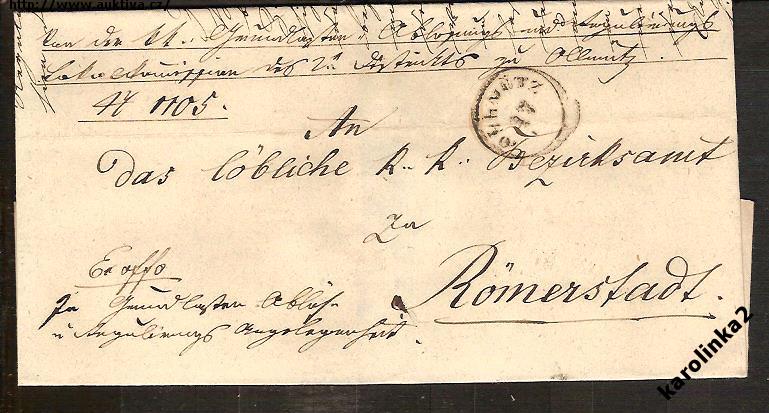 http://www.aukriva.cz/
Von der kk. Grundlasten Ablösungs und Regulierungs
Lokalkommission des 2n Districkts zu Ollmütz.
N 1105.
OLLMÜTZ
An
Das löbliche k. k. Bezirksamt
Zu
Römerstadt.
Ex offo
In Grundlasten Ablös-
u Regulierungs Angelegenheit.
karolinka2